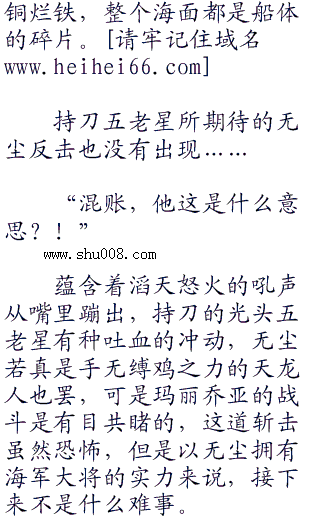 铜烂铁，整个海面都是船体
的碎片。[请牢记住域名
www.heihei66.com]
持刀五老星所期待的无
尘反击也没有出现……
“混账，他这是什么意
思？！”
www.shu008.com
蕴含着滔天怒火的吼声
从嘴里蹦出，持刀的光头五
老星有种吐血的冲动，无尘
若真是手无缚鸡之力的天龙
人也罢，可是玛丽乔亚的战
斗是有目共睹的，这道斩击
虽然恐怖，但是以无尘拥有
海军大将的实力来说，接下
来不是什么难事。